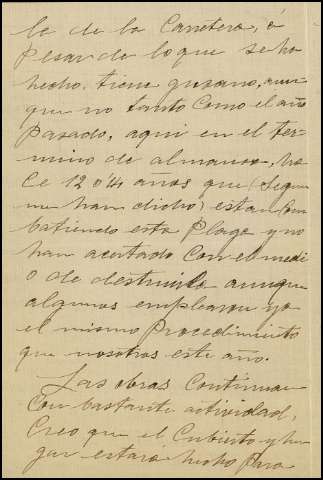 le de la Carretera, á
pesar de lo que se ha
hecho, tiene gusano, aun
que no tanto como el año
pasado, aqui en el ter-
mino de almansa, ha
ce 12 o 14 años que (segun
me han dicho) estan com
batiendo esta plaga y no
han acertado con el medi
o de destruirla aunque
algunos emplearon ya
el mismo procedimiento
que nosotros este año.
Las obras continuan
con bastante actividad,
Creo que el Cubierto y ho
gar estará hecho para